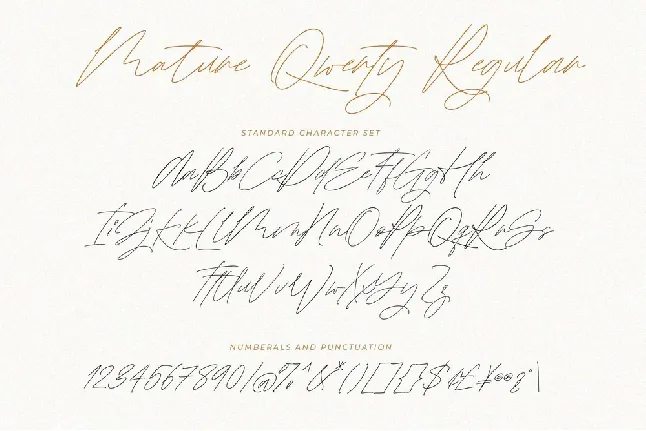 Mature Qwerty Regular
STANDARD CHARACTER SET
AaBbCcDdEeFfGgHh
IiJjKkLlMmNnOoPpQqRrSs
TtUuVvWwXxYyZz
NUMBERALS AND PUNCTUATION
1234567890!@%^&*()[]{}$¢£¥